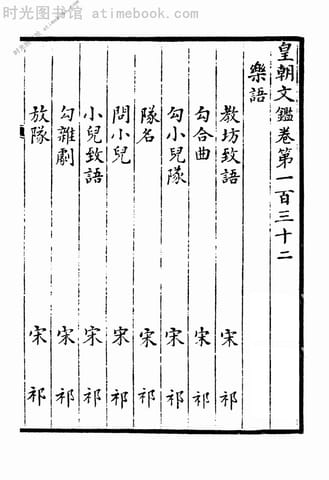 时光图书馆 - www.atimebook.com
皇朝文鑑卷第一百三十二
樂語
教坊致語 宋祁
勾合曲 宋祁
勾小兒隊 宋祁
隊名 宋祁
問小兒 宋祁
小兒致語 宋祁
勾雜劇 宋祁
放隊 宋祁